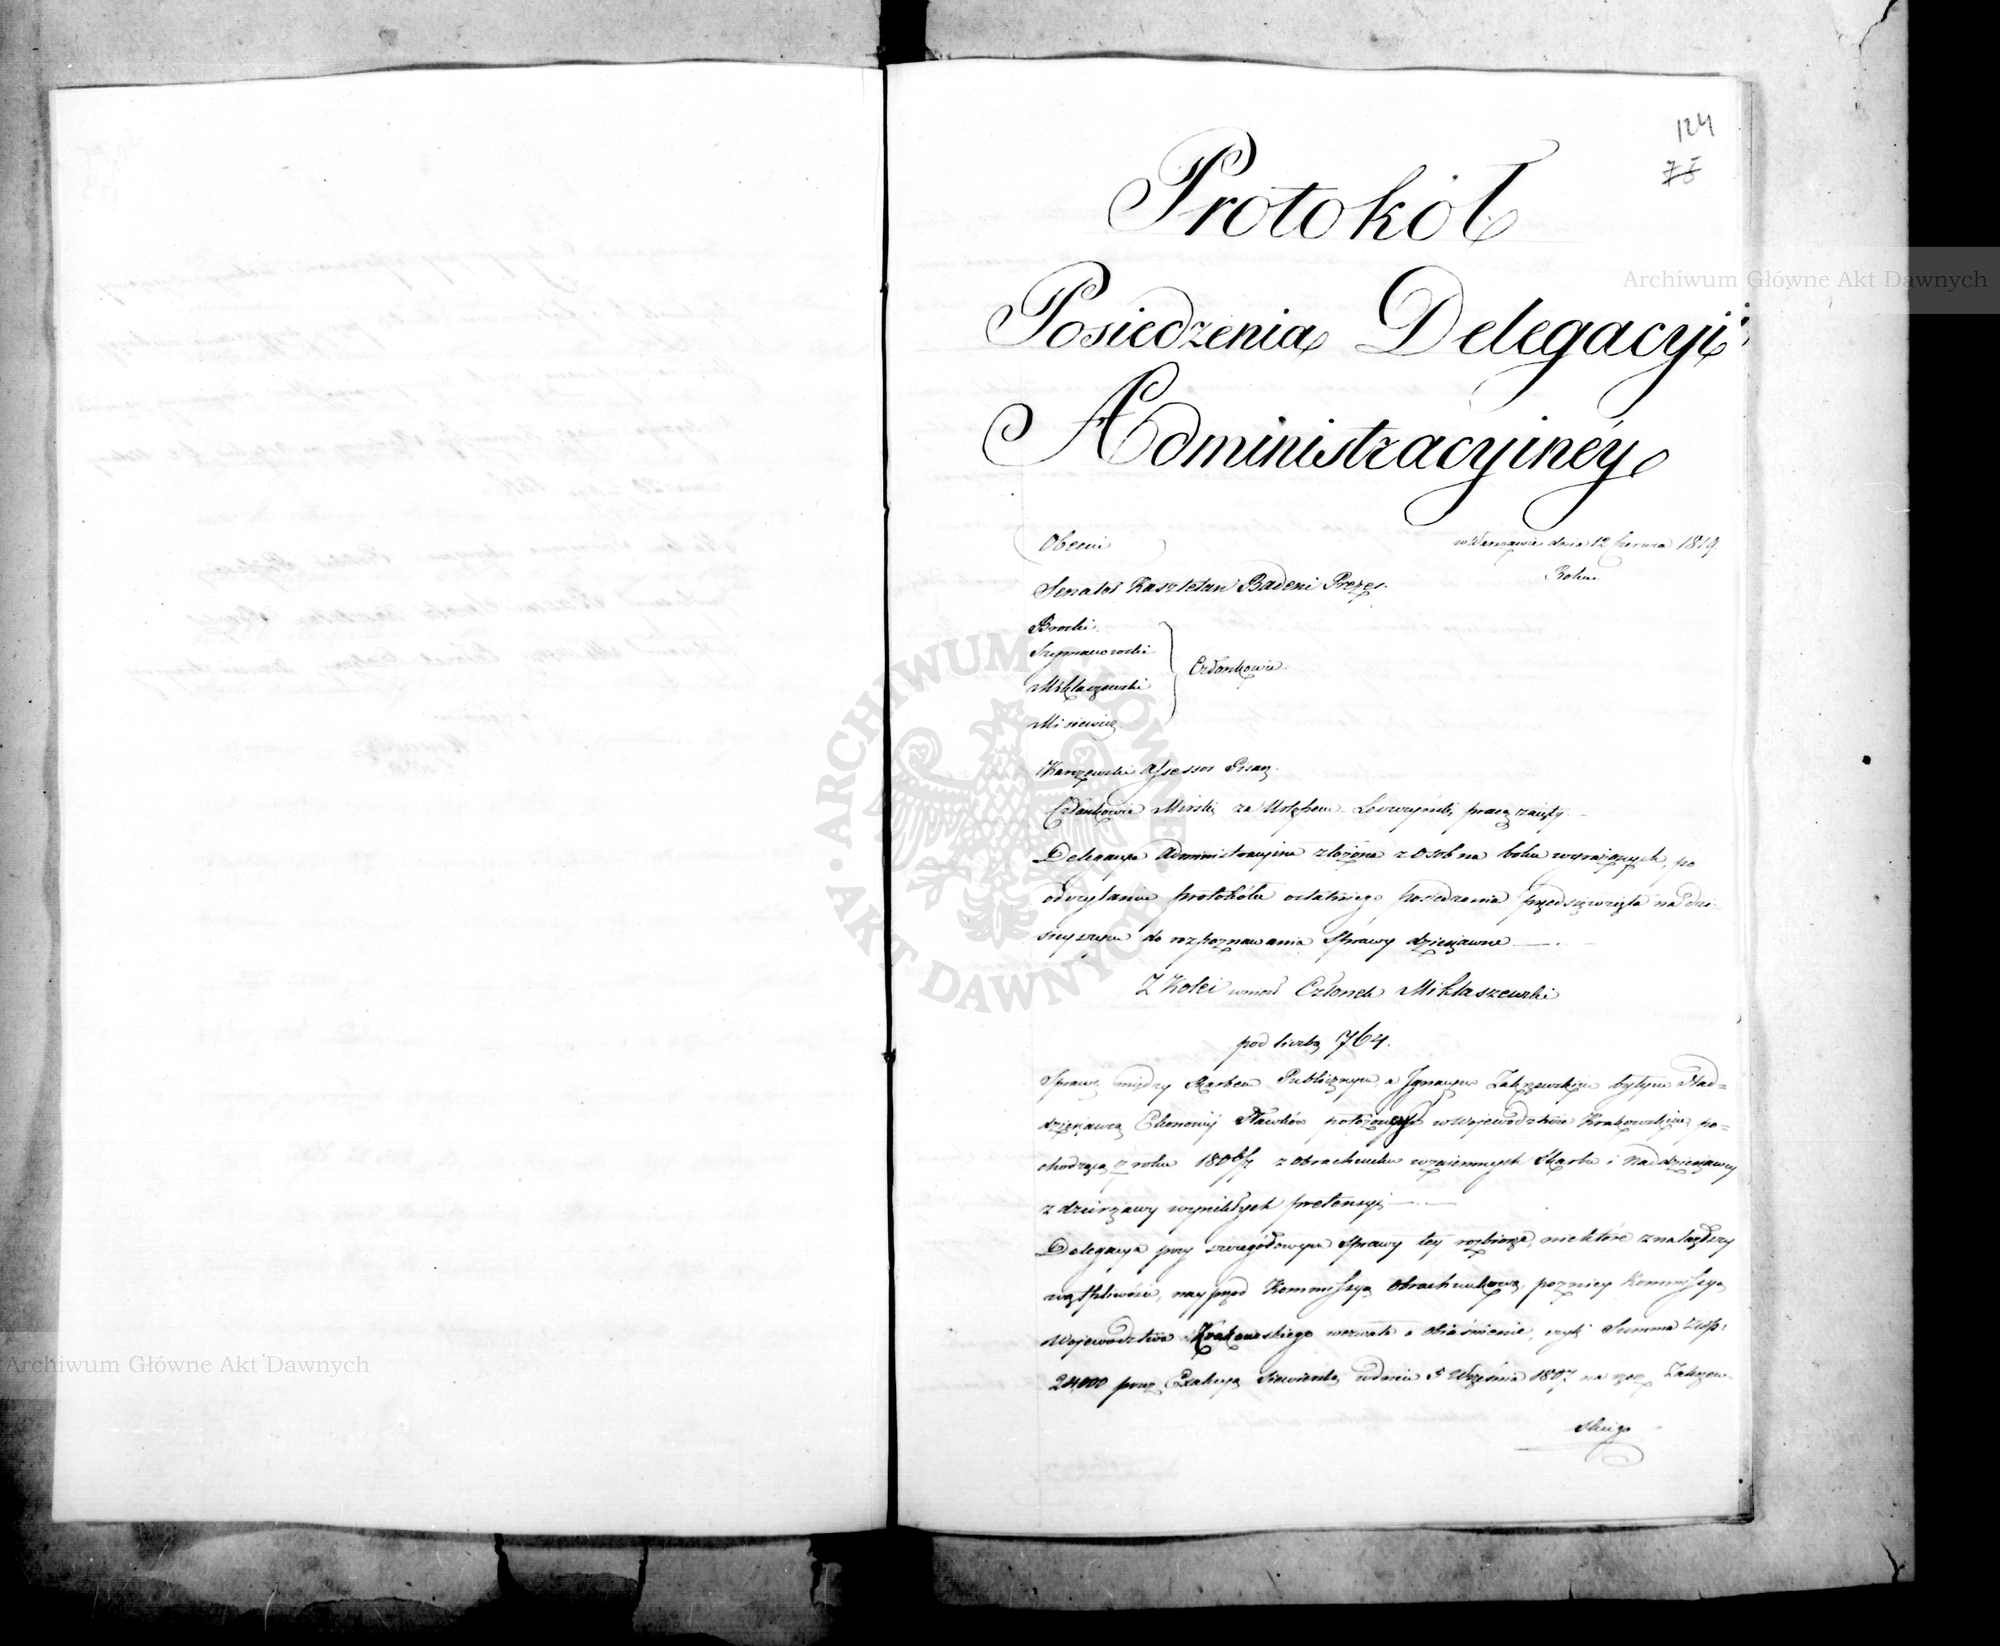 124
75
Protokół
Posiedzenia Delegacyi
Administracyinéy
Obecni
w Warszawie dnia 12 Czerwca 1819
Roku
Senator Kasztelan Badeni Prezes
Brocki
Szymanowski
Miklaszewski
Członkowie
Misiewicz
Karszewski Assessor Pisarz
Członkowie Mirski za Urlopem pracą zaięty
Delegacya Administracyina złożona z Osób na boku wyrażonych, po
odczytaniu protokółu ostatniego posiedzenia przedsięwzięła na dzi-
sieyszym do rozpoznawania Sprawy dzierżawne
Z Kolei wniosł Członek Miklaszewski
pod liczbą 764.
Sprawę między Skarbem Publicznym, a Ignacym Zakrzewskim byłym Nad-
dzierżawcą Ekonomij Sławków położoney w Woiewództwie Krakowskim, po-
chodzącą z roku 1806/7 z obrachunku wzaiemnych Skarbu i Naddzierżawcy
z dzierżawy wynikłych pretensyi
Delegacya przy szczegółowym Sprawy téy rozbiorze, niektóre znalazłszy
wątpliwości, nayprzód Kommissyą Obrachunkową, pozniey Kommissyą
Woiewództwa Krakowskiego wezwała o obiaśnienie, czyli Summa Złp:
24,000 przez Exakcyą Siewierską w dniu 5 Września 1807 na rzecz Zakrzew-
skiego
Archiwum Główne Akt Dawnych
ARCHIWUM GŁÓWNE AKT DAWNYCH
Archiwum Główne Akt Dawnych